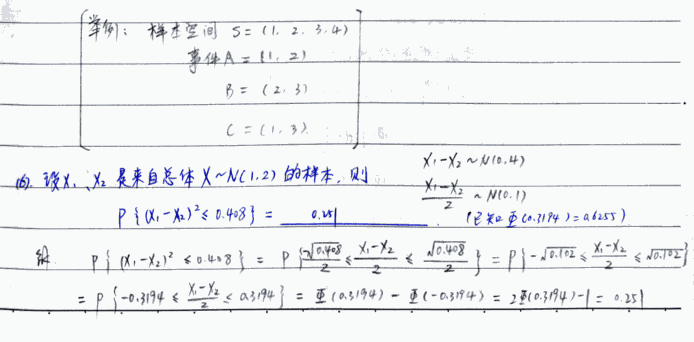 举例: 样本空间 S = (1. 2. 3. 4)
事件A = (1. 2)
B = (2. 3)
C = (1. 3)
(6). 设X₁、X₂是来自总体X~N(1.2)的样本,则
P{(X₁-X₂)²≤0.408} = 0.251 . (已知Φ(0.3194)=0.6255)
X₁-X₂~N(0.4)
(X₁-X₂)/2 ~ N(0.1)
解 P{(X₁-X₂)²≤0.408} = P{-√0.408/2 ≤ (X₁-X₂)/2 ≤ √0.408/2} = P{-√0.102 ≤ (X₁-X₂)/2 ≤ √0.102}
= P{-0.3194 ≤ (X₁-X₂)/2 ≤ 0.3194} = Φ(0.3194) - Φ(-0.3194) = 2Φ(0.3194)-1 = 0.251